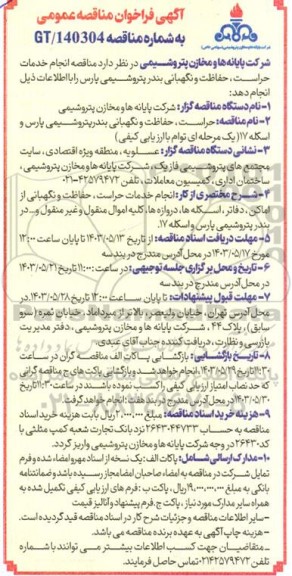 آگهی فراخوان مناقصه عمومی
به شماره مناقصه GT/140304
شرکت پایانه ها و مخازن پتروشیمی در نظر دارد مناقصه انجام خدمات
حراست، حفاظت و نگهبانی بندر پتروشیمی پارس را با اطلاعات ذیل
انجام دهد:
۱- نام دستگاه مناقصه گزار: شرکت پایانه ها و مخازن پتروشیمی
۲- نام مناقصه: حراست، حفاظت و نگهبانی بندر پتروشیمی پارس و
اسکله ۱۷ (یک مرحله ای توام با ارزیابی کیفی)
۳- نشانی دستگاه مناقصه گزار: عسلویه، منطقه ویژه اقتصادی، سایت
مجتمع های پتروشیمی فاز یک، شرکت پایانه ها و مخازن پتروشیمی،
ساختمان اداری، کمیسیون معاملات، تلفن ۴۲۵۷۹۴۷۲-۰۲۱
۴- شرح مختصری از کار: انجام خدمات حراست، حفاظت و نگهبانی از
اماکن، دفاتر، اسکله ها، دروازه ها، کلیه اموال منقول و غیر منقول و... در
بندر پتروشیمی پارس و اسکله ۱۷.
۵- مهلت دریافت اسناد مناقصه: از تاریخ ۱۴۰۳/۰۵/۱۳ تا پایان ساعت ۱۲:۰۰
مورخ ۱۴۰۳/۰۵/۱۷ در محل آدرس مندرج در بند سه
۶- تاریخ و محل برگزاری جلسه توجیهی: در ساعت ۱۱:۰۰ تاریخ ۱۴۰۳/۰۵/۲۱
در محل آدرس مندرج در بند سه
۷- مهلت قبول پیشنهادات: تا پایان ساعت ۱۲:۰۰ تاریخ ۱۴۰۳/۰۵/۲۸ در
محل آدرس تهران، خیابان ولیعصر، بالاتر از میرداماد، خیابان ثمره (سرو
سابق)، پلاک ۴۴، شرکت پایانه ها و مخازن پتروشیمی، دفتر مدیریت
بازرسی و نظارت، دریافت کننده جناب آقای عبدی
۸- تاریخ بازگشایی: بازگشایی پاکات الف مناقصه گران در ساعت
۱۱:۳۰ تاریخ ۱۴۰۳/۰۵/۲۹ انجام خواهد شد و بازگشایی پاکت های ج مناقصه گرانی
که حد نصاب امتیاز ارزیابی کیفی را کسب نموده باشند در ساعت ۱۱:۳۰ تاریخ
در محل آدرس مندرج در بند هفت انجام خواهد گرفت.
۹- هزینه خرید اسناد مناقصه: مبلغ ۲,۰۰۰,۰۰۰ ریال بابت هزینه خرید اسناد
مناقصه به حساب ۲۶۴۳۰۴۴۷۳۳ نزد بانک تجارت شعبه کمپ مثلثی با
کد ۲۶۴۳۰ در وجه شرکت پایانه ها و مخازن پتروشیمی واریز گردد.
۱۰- مدارک ارسالی شامل: پاکات الف: یک نسخه از اسناد مهر و امضاء شده و فرم
تمایل شرکت در مناقصه به امضاء صاحبان امضا مجاز رسیده باشد و ضمانتنامه
بانکی به مبلغ ریال، پاکت ب: فرم های ارزیابی کیفی تکمیل شده به
همراه سایر مدارک مورد نیاز، پاکت ج: فرم پیشنهاد و آنالیز قیمت
- سایر اطلاعات مناقصه و جزئیات شرح کار در اسناد مناقصه قید گردیده است.
- هزینه چاپ آگهی به عهده برنده مناقصه می باشد.
- متقاضیان جهت کسب اطلاعات بیشتر می توانند با شماره
تلفن ۴۲۵۷۹۴۷۲-۰۲۱ تماس حاصل فرمایند.